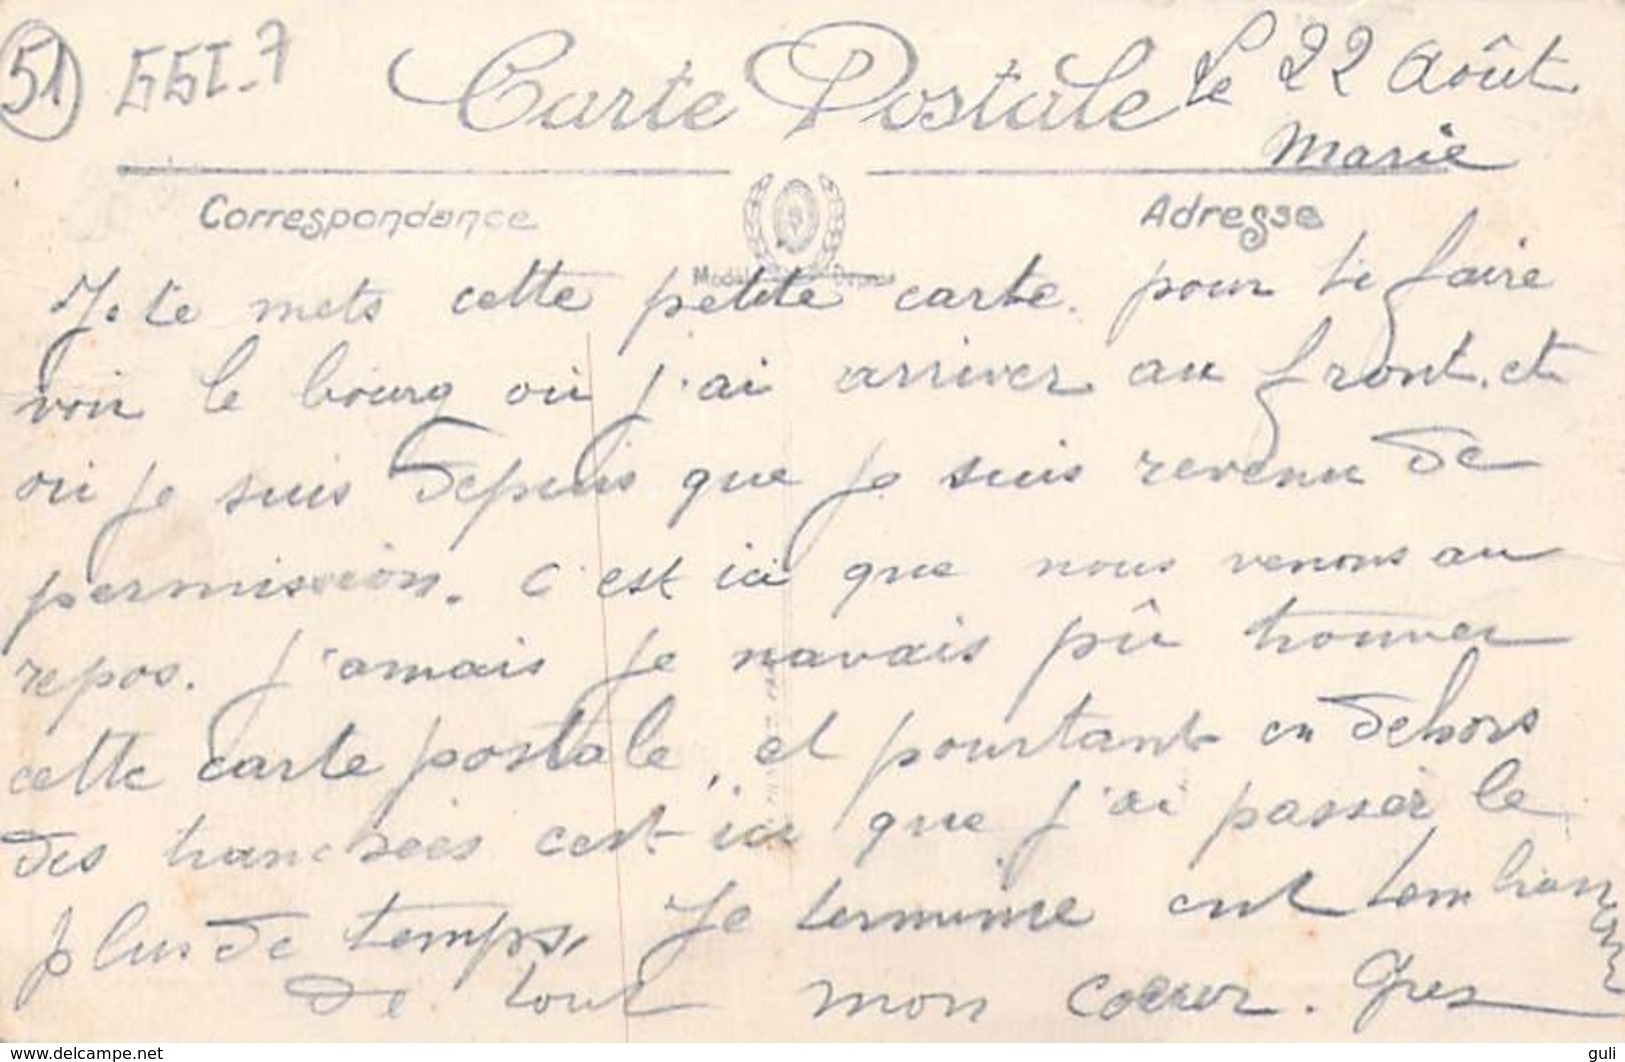 51
551-7
Carte Postale
Le 22 Août
Marie
Correspondance
Adresse
Je te mets cette petite carte. pour te faire
voir le bourg où j'ai arriver au front. et
où je suis depuis que je suis revenu de
permission. C'est ici que nous venons au
repos. J'amais je navais pû trouver
cette carte postale, et pourtant en dehors
des tranchées cest ici que j'ai passer le
plus de temps, Je termine ent
de tout mon Coeur.
www.delcampe.net
guli